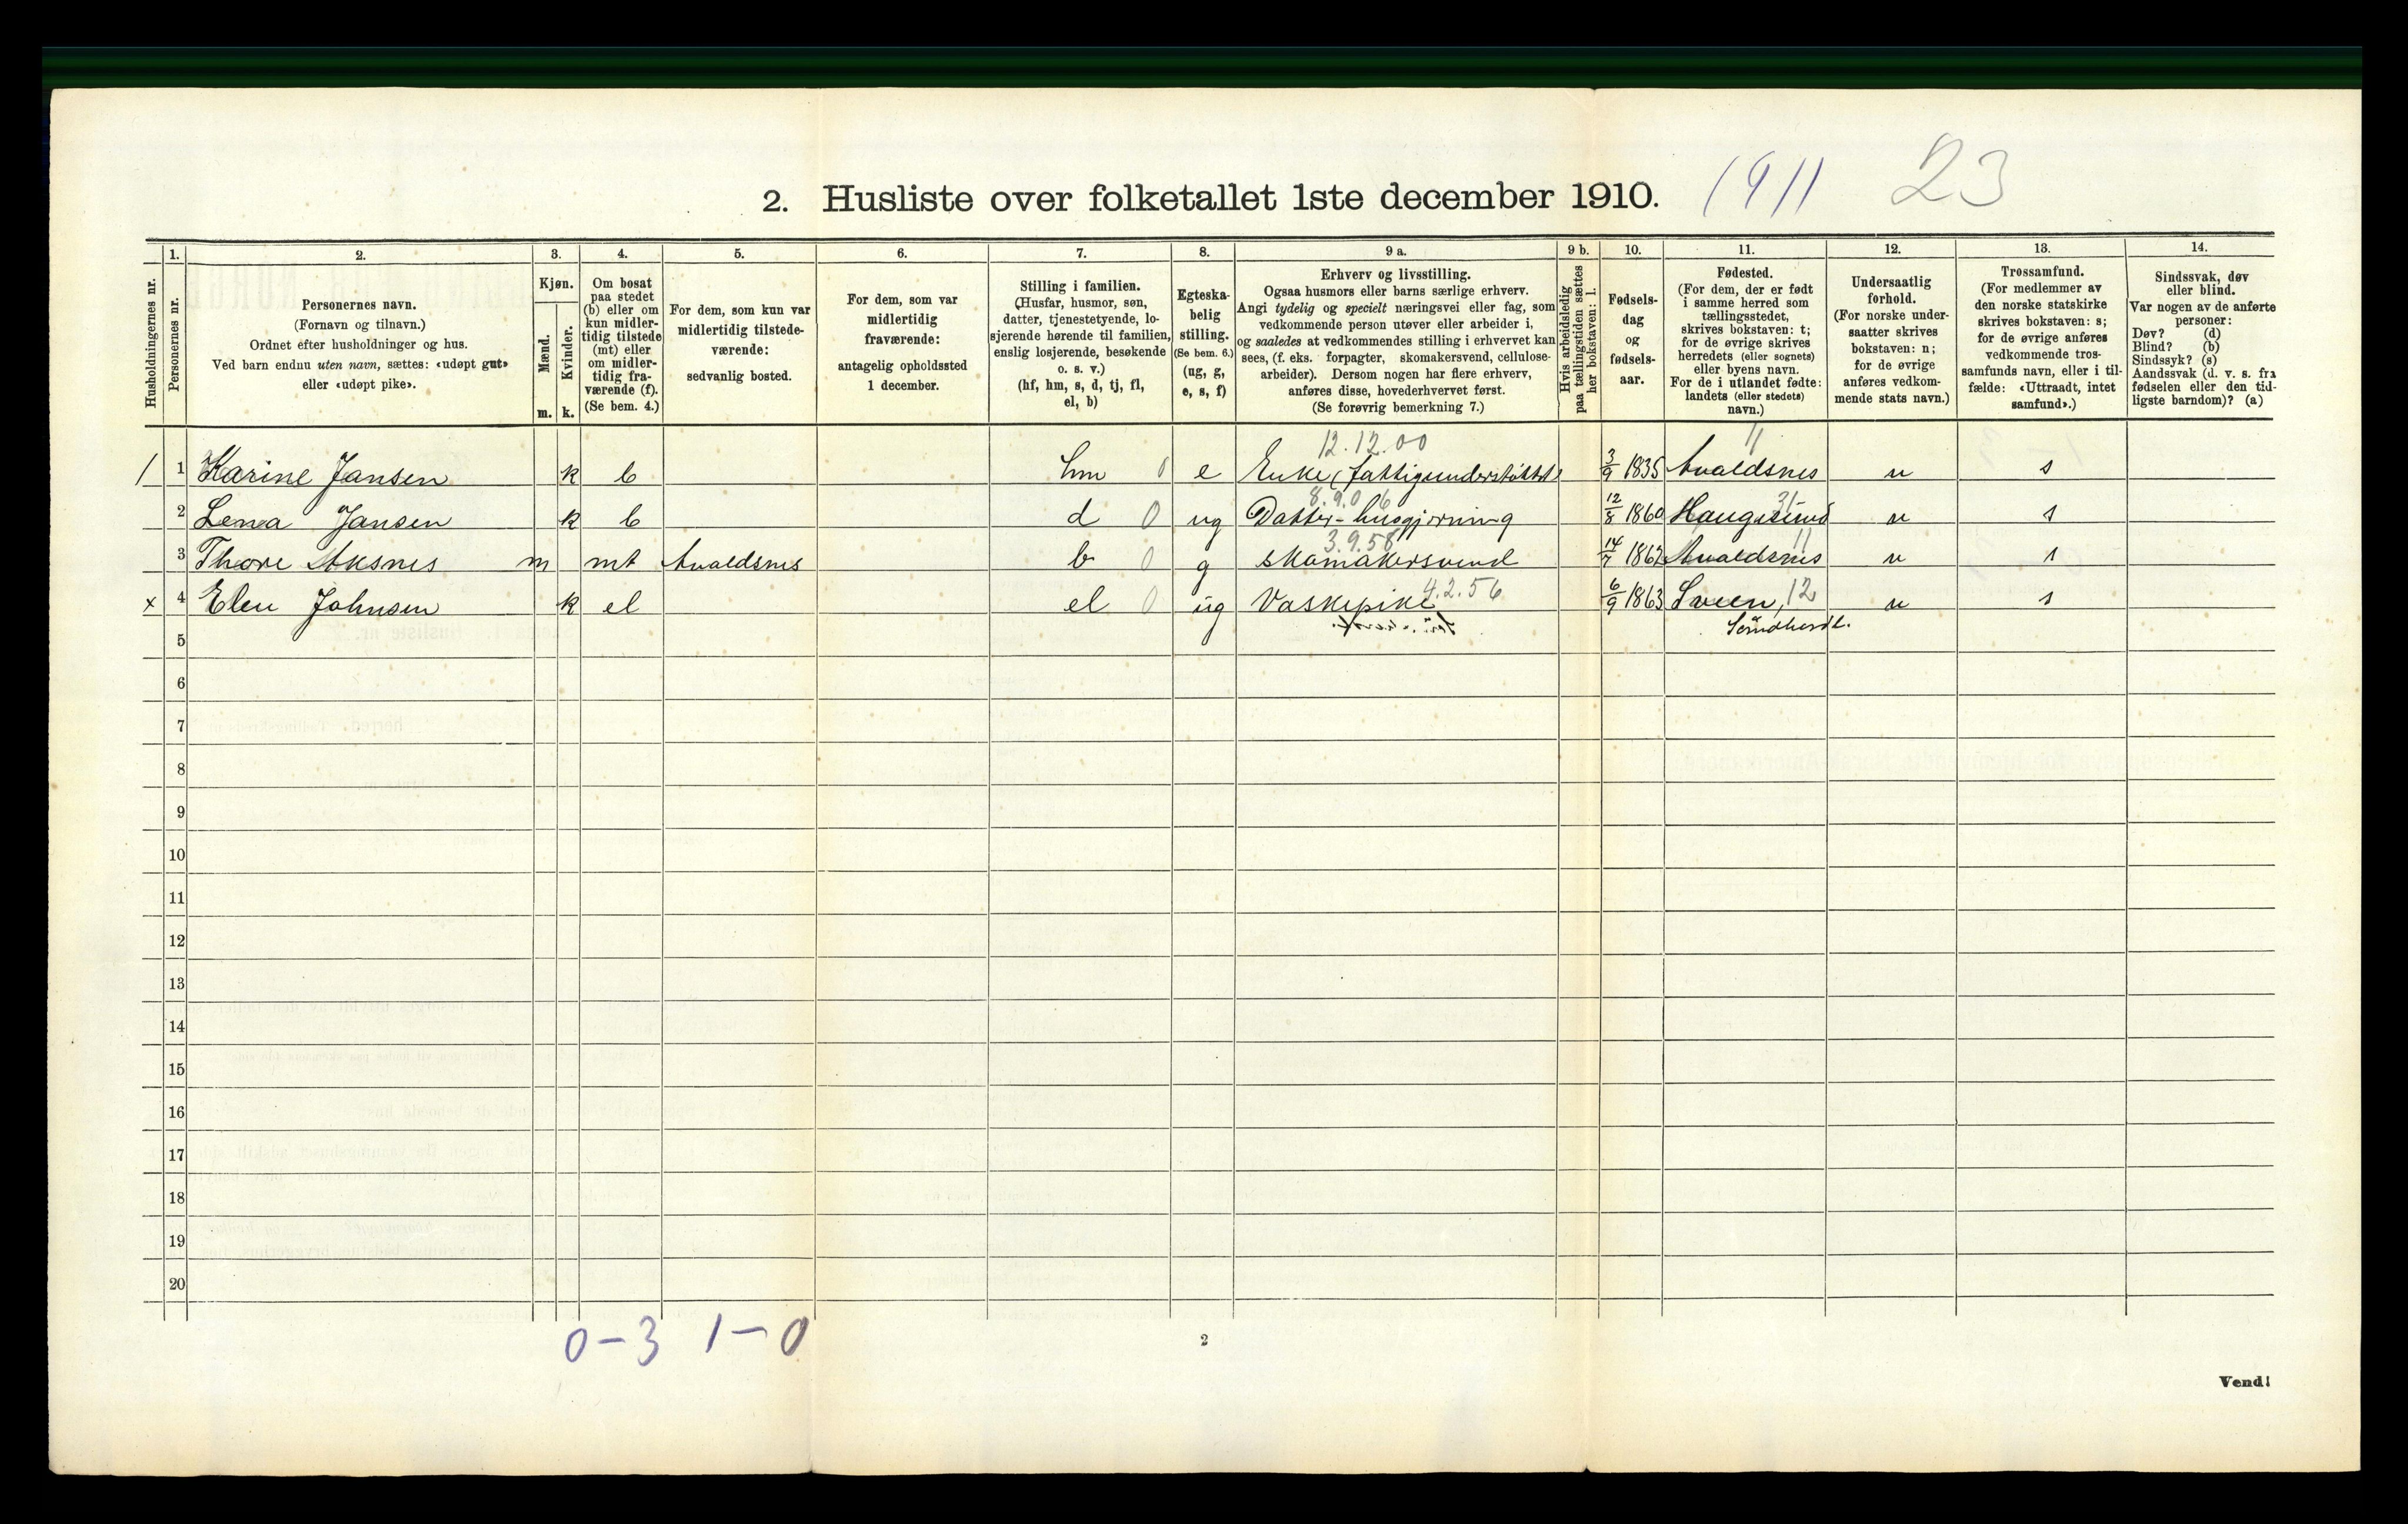 2. Husliste over folketallet 1ste december 1910. 1911 23
Husholdningernes nr.
1.
Personernes nr.
2.
Personernes navn.
(Fornavn og tilnavn.)
Ordnet efter husholdninger og hus.
Ved barn endnu uten navn, sættes: «udøpt gut»
eller «udøpt pike».
3.
Kjøn.
Mænd.
m.
Kvinder.
k.
4.
Om bosat
paa stedet
(b) eller om
kun midler-
tidig tilstede
(mt) eller
om midler-
tidig fra-
værende (f).
(Se bem. 4.)
5.
For dem, som kun var
midlertidig tilstede-
værende:
sedvanlig bosted.
6.
For dem, som var
midlertidig
fraværende:
antagelig opholdssted
1 december.
7.
Stilling i familien.
(Husfar, husmor, søn,
datter, tjenestetyende, lo-
sjerende hørende til familien,
enslig losjerende, besøkende
o. s. v.)
(hf, hm, s, d, tj, fl,
el, b)
8.
Egteska-
belig
stilling.
(Se bem. 6.)
(ug, g,
e, s, f)
9 a.
Erhverv og livsstilling.
Ogsaa husmors eller barns særlige erhverv.
Angi tydelig og specielt næringsvei eller fag, som
vedkommende person utøver eller arbeider i,
og saaledes at vedkommendes stilling i erhvervet kan
sees, (f. eks. forpagter, skomakersvend, cellulose-
arbeider). Dersom nogen har flere erhverv,
anføres disse, hovederhvervet først.
(Se forøvrig bemerkning 7.)
9 b.
Hvis arbeidsledig
paa tællingstiden sættes
her bokstaven: l.
10.
Fødsels-
dag
og
fødsels-
aar.
11.
Fødested.
(For dem, der er født
i samme herred som
tællingsstedet,
skrives bokstaven: t;
for de øvrige skrives
herredets (eller sognets)
eller byens navn.
For de i utlandet fødte:
landets (eller stedets)
navn.)
12.
Undersaatlig
forhold.
(For norske under-
saatter skrives
bokstaven: n;
for de øvrige
anføres vedkom-
mende stats navn.)
13.
Trossamfund.
(For medlemmer av
den norske statskirke
skrives bokstaven: s;
for de øvrige anføres
vedkommende tros-
samfunds navn, eller i til-
fælde: «Uttraadt, intet
samfund».)
14.
Sindssvak, døv
eller blind.
Var nogen av de anførte
personer:
Døv? (d)
Blind? (b)
Sindssyk? (s)
Aandssvak (d. v. s. fra
fødselen eller den tid-
ligste barndom)? (a)
12.12.00 11
1 1 Karine Jansen k b hm 0 e Enke (fattigunderstøttet) 3/9 1835 Avaldsnes n s
8.9.06 31
2 Lena Jansen k b d 0 ug Datter-husgjerning 12/8 1860 Haugesund n s
3.9.58 11
3 Thore Aksnes m mt Avaldsnes b 0 g skomakersvend 14/7 1862 Avaldsnes n s
4.2.56
x 4 Elen Johnsen k el el 0 ug Vaskepike 6/9 1863 Sveen, 12 n s
5 Søndhordl.
6
7
8
9
10
11
12
13
14
15
16
17
18
19
20
0-3 1-0
2
Vend!